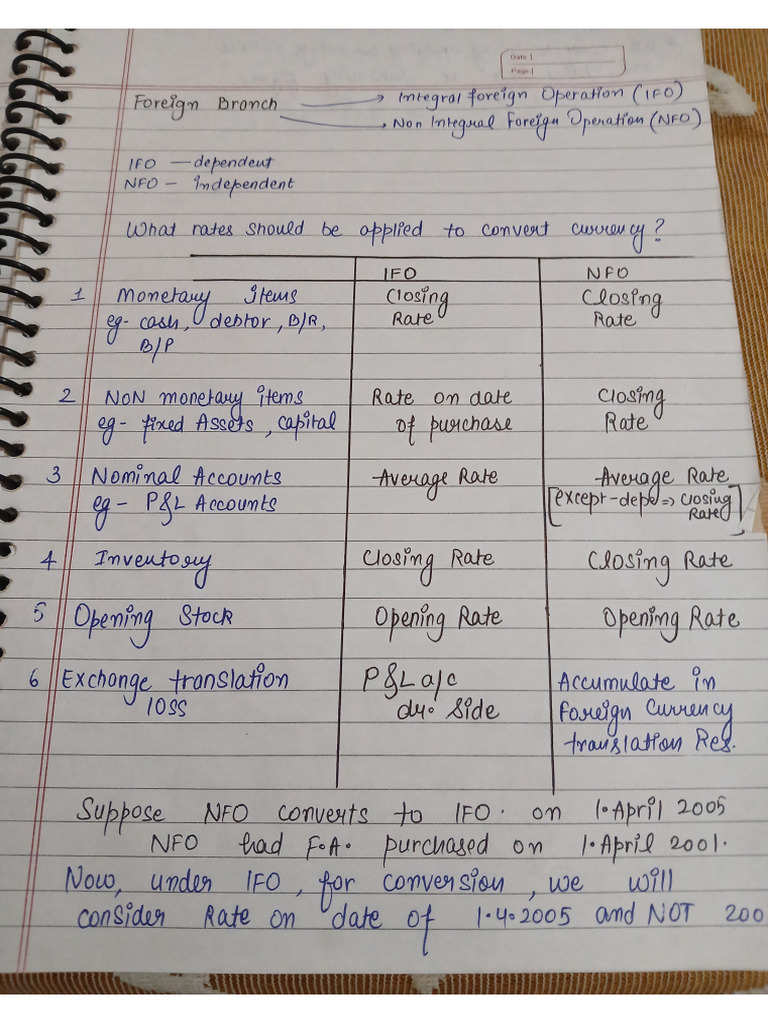 Date |
Page |
Foreign Branch → Integral foreign Operation (IFO)
→ Non Integral Foreign Operation (NFO)
IFO — dependent
NFO - independent
What rates should be applied to convert currency?
IFO NFO
1 Monetary items Closing Closing
eg- cash, debtor, B/R, Rate Rate
B/P
2 NON monetary items Rate on date Closing
eg- fixed Assets, capital of purchase Rate
3 Nominal Accounts Average Rate Average Rate
eg - P&L Accounts [except-depo => closing
Rate]
4 Inventory Closing Rate Closing Rate
5 Opening Stock Opening Rate Opening Rate
6 Exchange translation P&L a/c Accumulate in
loss dr. Side Foreign Currency
translation Res.
Suppose NFO converts to IFO. on 1.April 2005
NFO had F.A. purchased on 1.April 2001.
Now, under IFO, for conversion, we will
consider Rate on date of 1.4.2005 and NOT 200